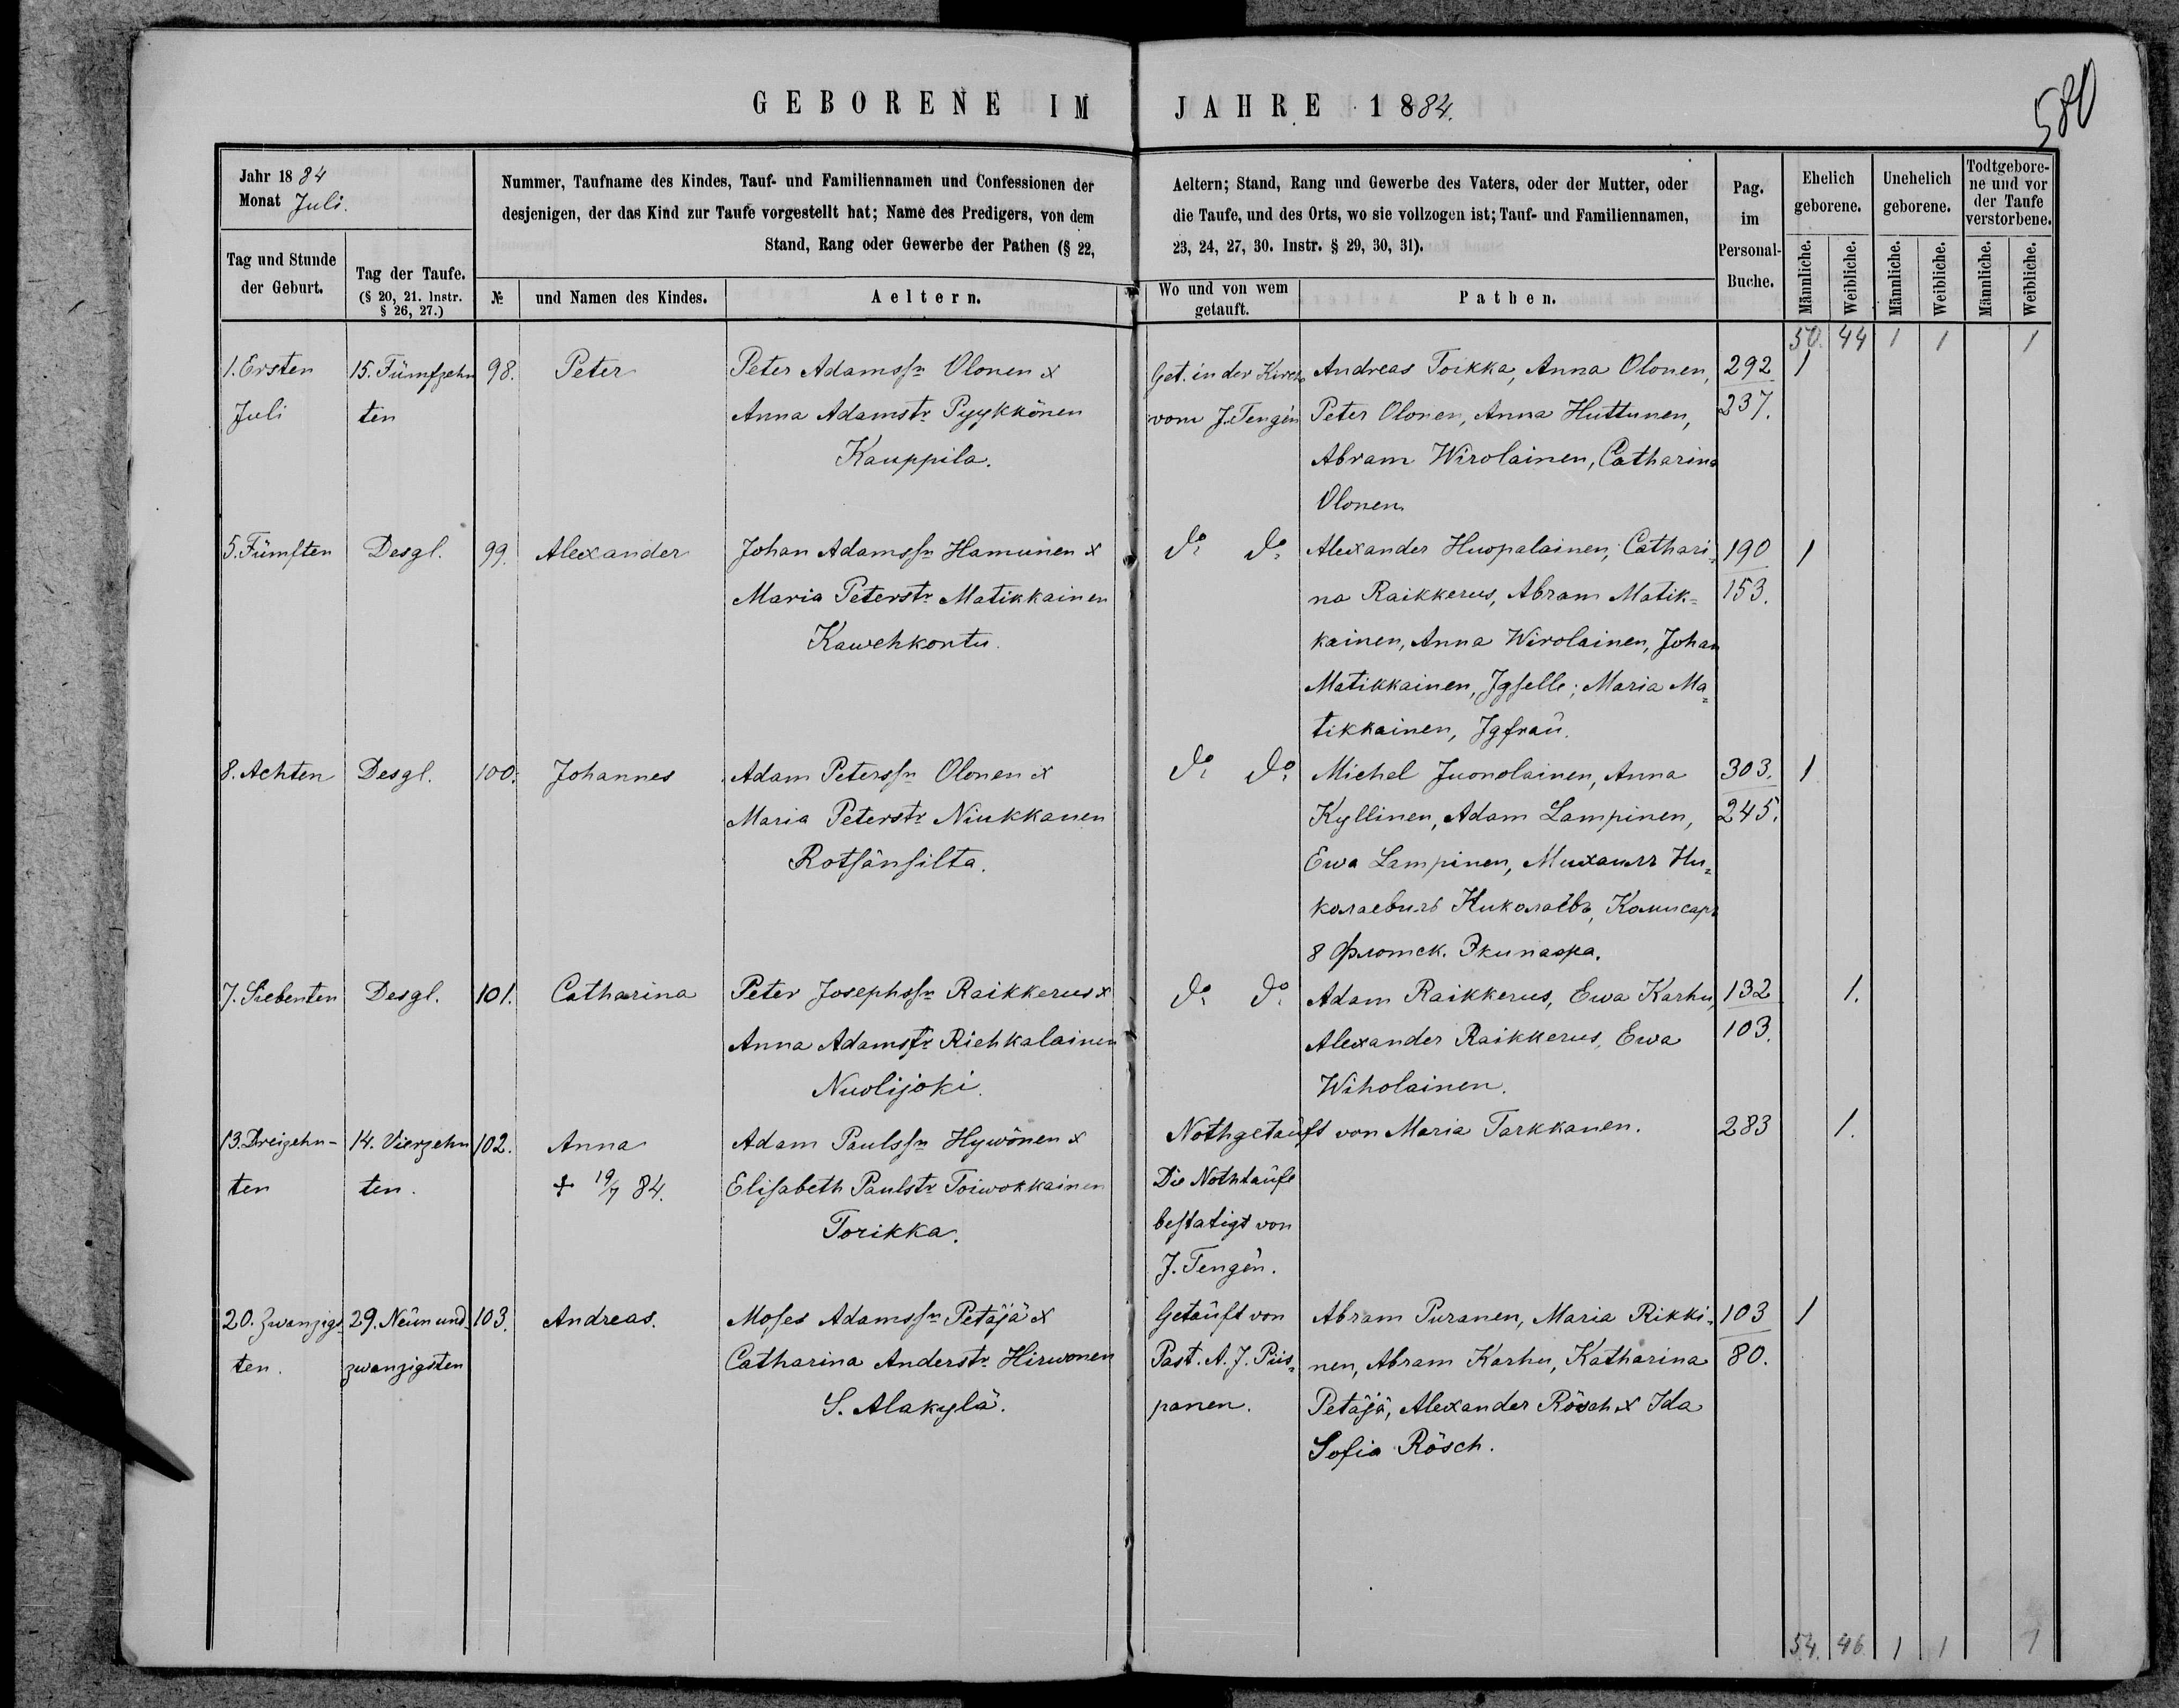 GEBORENE IM JAHRE 1884.
580
Jahr 1884
Monat Juli.
Nummer, Taufname des Kindes, Tauf- und Familiennamen und Confessionen der
desjenigen, der das Kind zur Taufe vorgestellt hat; Name des Predigers, von dem
Stand, Rang oder Gewerbe der Pathen (§ 22,
Aeltern; Stand, Rang und Gewerbe des Vaters, oder der Mutter, oder
die Taufe, und des Orts, wo sie vollzogen ist; Tauf- und Familiennamen,
23, 24, 27, 30. Instr. § 29, 30, 31).
Pag.
im
Personal-
Buche.
Ehelich
geborene.
Unehelich
geborene.
Todtgebore-
ne und vor
der Taufe
verstorbene.
Männliche. Weibliche. Männliche. Weibliche. Männliche. Weibliche.
Tag und Stunde
der Geburt.
Tag der Taufe.
(§ 20, 21. Instr.
§ 26, 27.)
№ und Namen des Kindes. Aeltern.
Wo und von wem
getauft.
Pathen.
50. 44 1 1 1
1. Ersten 15. Fümfzehn 98. Peter Peter Adamssn Olonen & Get. in der Kirche Andreas Toikka, Anna Olonen, 292 1
Juli ten Anna Adamstr Pyykkönen vom J. Tengén Peter Olonen, Anna Huttunen, 237.
Kauppila. Abram Wirolainen, Catharina
Olonen
5. Fümften Desgl. 99. Alexander Johan Adamssn Hamunen & do do Alexander Huopalainen, Cathari= 190 1
Maria Peterstr Matikkainen na Raikkerus, Abram Matik= 153.
Kawehkontu. kainen, Anna Wirolainen, Johan
Matikkainen, Jgselle; Maria Ma=
tikkainen, Jgfrau.
8. Achten Desgl. 100. Johannes Adam Peterssn Olonen & do do Michel Juonolainen, Anna 303. 1
Maria Peterstr Niukkanen Kyllinen, Adam Lampinen, 245.
Rotsänsilta. Ewa Lampinen, Михаилъ Ни=
колаевичъ Николаевъ, Комисаръ
8 Флотск. Экипажа.
7. Siebenten Desgl. 101. Catharina Peter Josephssn Raikkerus & do do Adam Raikkerus, Ewa Karhu, 132 1.
Anna Adamstr Riehkalainen Alexander Raikkerus, Ewa 103.
Nuolijoki. Wiholainen.
13. Dreizehn- 14. Vierzehn 102. Anna Adam Paulssn Hywönen & Nothgetauft von Maria Tarkkanen. 283 1.
ten ten. + 19/7 84. Elisabeth Paulstr Toiwokkainen Die Nothtaufe
Torikka. bestatigt von
J. Tengén.
20. Zwanzigs- 29. Neun und 103. Andreas. Moses Adamssn Petäjä & Getauft von Abram Puranen, Maria Rikki- 103 1
ten. zwanzigsten Catharina Anderstr Hirwonen Past. A. J. Piis= nen, Abram Karhu, Katharina 80.
S. Alakylä. panen. Petäjä, Alexander Rösch & Ida
Sofia Rösch.
54. 46. 1 1 1